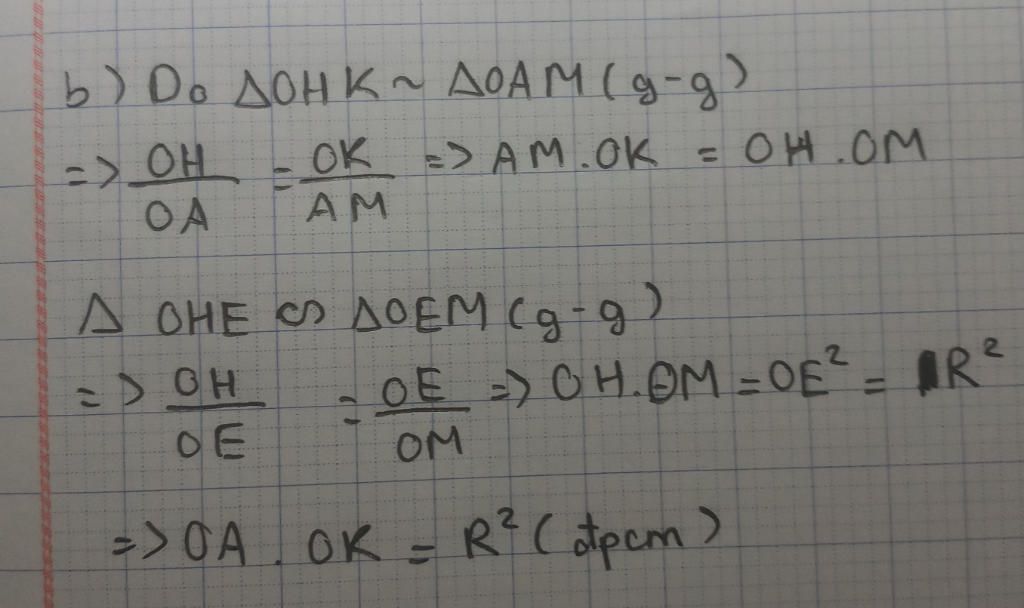 b) Do ΔOHK ~ ΔOAM (g-g)
=> OH/OA = OK/AM => AM.OK = OH.OM
Δ OHE ∽ ΔOEM (g-g)
=> OH/OE = OE/OM => OH.OM = OE² = R²
=> OA.OK = R² (đpcm)